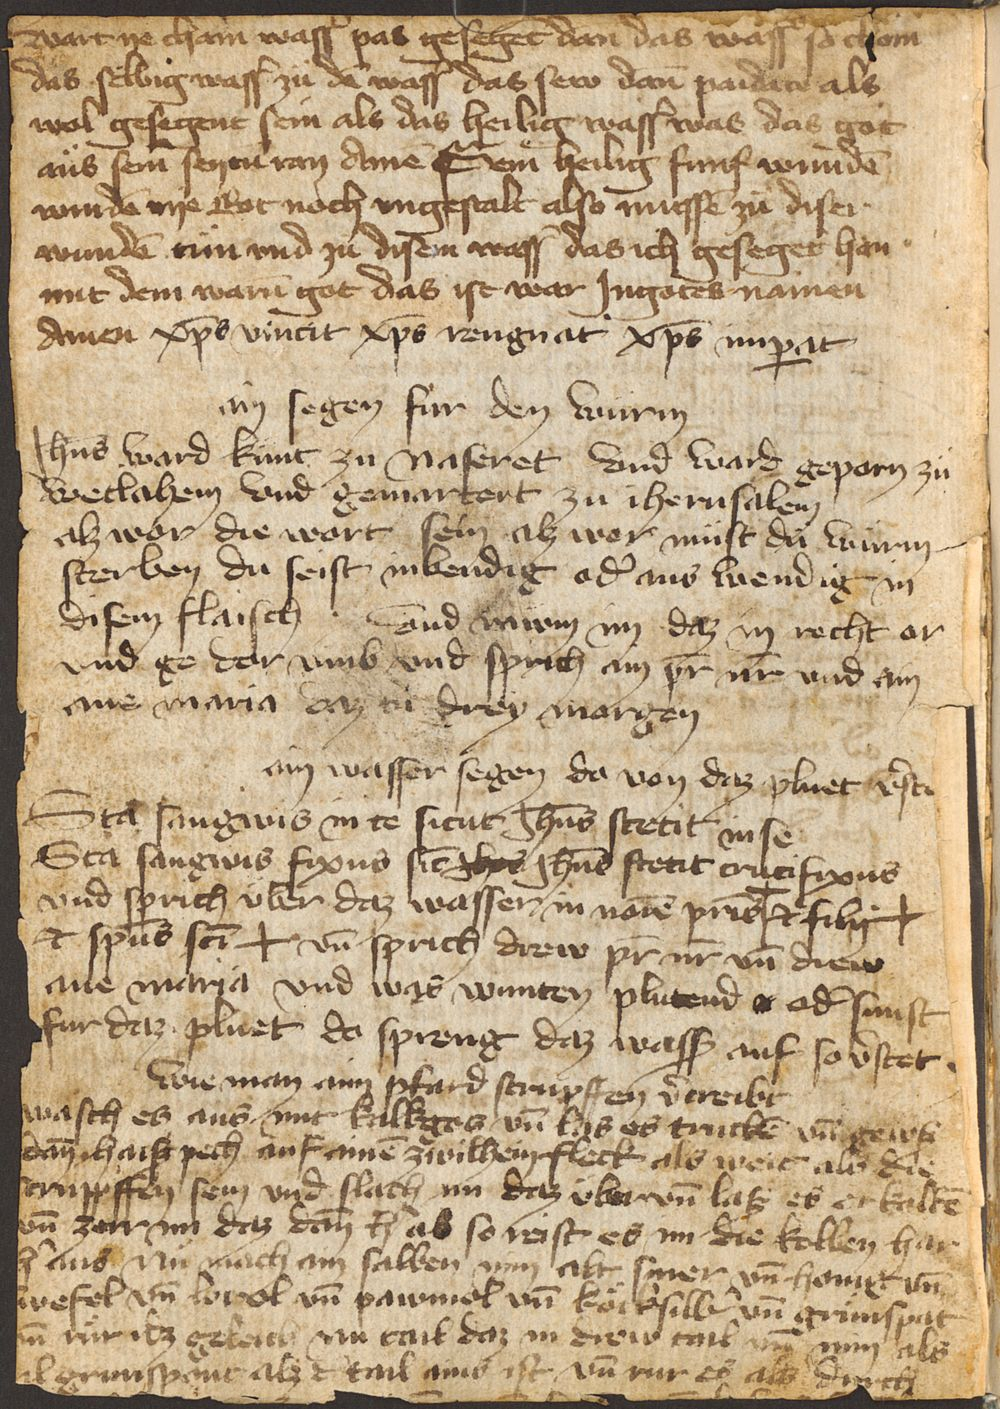 wart nie chain wass pas geseget dan das wass so chom
das selbig wass zu de wass das sew dan paidew als
wol gesegent sein als das heilig wass was das got
aus sein seytn ran Amē Sein heilig funf wundē
wurdē nye Rot noch ungestalt also muessē zu diser
wundē tun vnd zu disem wass das ich geseget han
mit dem warn got das ist war In gotes namen
Amen xp̄s vincit xp̄s rengnat xp̄s imperat
ain segen fur den wurm
Jhus ward kunt zu naseret vnd ward geporn zu
wetlahem vnd gemartert zu iherusalem
alz wor die wort sein alz wor must du wurm
sterben du seist inbendig od aus wendig in
disem flaisch vnd rawm im daz in recht or
vnd ge dar umb vnd sprich ain pr nr vnd ain
aue maria daz tu drey morgen
ain wasser segen do von daz pluet v̄ste
Sta sangwis in te sicut Jhus stetit in se
Sta sangwis fixus sic Jhus stetit crucifixus
vnd sprich vber daz wasser in noīe pris + et filij +
et spūs scī + vn̄ sprich drew pr nr vn̄ drew
aue maria vnd was wunten plutend od sunst
fur daz pluet do spreng daz wass auf so v̄stet
Wie man aim pfard strupffen v̄treibt
wasch es aus mit kalkgos vn̄ las es truckē vn̄ gews
dan̄ haiß pech auf ainē zwilhein fleck als weit als die
strupffen sein vnd slach im daz vber vn̄ laß es erkaltē
vn̄ zerr im daz dan̄ h ab so reist es im die kolben har
h aus Nu mach ain salben nim alt smer vn̄ honig vn̄
swefel vn̄ lorol vn̄ pawmol vn̄ köcksilber vn̄ grunspat
vn̄ rur itz geleich im tail daz in drew tail vn̄ nim als
vil grunspant alz d tail ains ist vn̄ rur es als durch